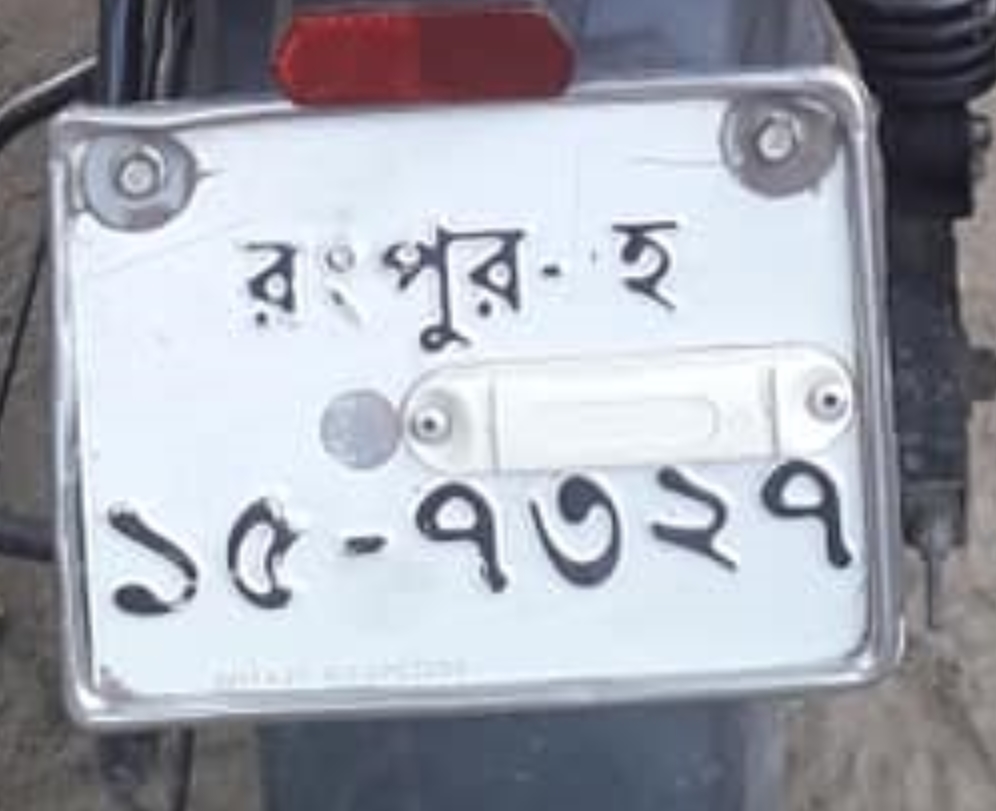 রংপুর-হ
১৫-৭৩২৭